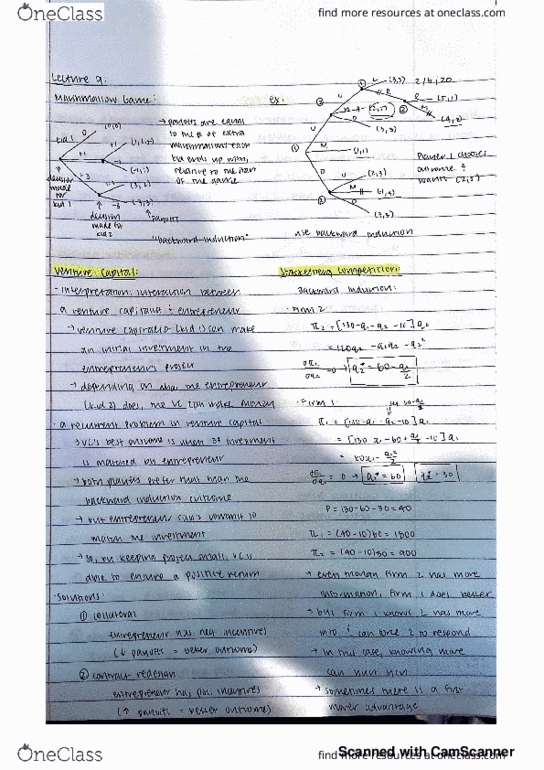 OneClass
find more resources at oneclass.com
Lecture 9.
Marshmallow Game:
ex:
2/6/20
kid 1
→ payouts are equal
to the # of extra
marshmallows each
kid ends up with,
relative to the start
of the game
decision
made for
kid 1
decision
made for
kid 2
payouts
"backward induction"
Player 1 chooses
outcome
wants (2,5)
use backward induction
Venture Capital:
- interpretation: interaction between
a venture capitalist & entrepreneur
→ venture capitalist (kid 1) can make
an initial investment in the
entrepreneur's project
→ depending on what the entrepreneur
(kid 2) does, the VC can make money
- a recurrent problem in venture capital
→ VC's best outcome is when 3x investment
is matched by entrepreneur
→ both players prefer that than the
backward induction outcome
→ but entrepreneur can't commit to
match the investment
→ so, by keeping project small, VC is
able to ensure a positive return
Solutions:
① collateral
entrepreneur has neg incentives
(↓ payouts = better outcome)
② contract redesign
entrepreneur has pos. incentives
(↑ payouts = better outcome)
Stackelberg Competition:
Backward induction:
- Firm 2
π₂ = [130-q₁-q₂-10]q₂
= 120q₂ - q₁q₂ - q₂²
∂π₂/∂q₂ = 0 → q₂* = 60 - q₁/2
- Firm 1
= 0 → q₁* = 60 q₂* = 30
P = 130-60-30 = 40
π₁ = (40-10)60 = 1800
π₂ = (40-10)30 = 900
→ even though Firm 2 has more
information, Firm 1 does better
→ but Firm 1 knows 2 has more
info & can force 2 to respond
→ in this case, knowing more
can hurt him
→ sometimes there is a first
mover advantage
OneClass
find more resources at oneclass.com
Scanned with CamScanner